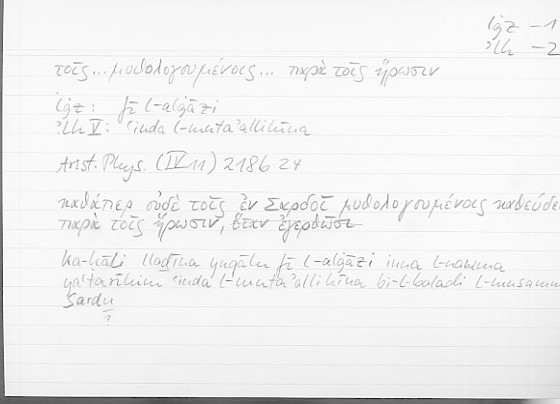 lġz – 1
ʾlh – 2
τοῖς ... μυθολογουμένοις ... παρὰ τοῖς ἥρωσιν
lġz : fī l-alġāzi
ʾlh V : ʿinda l-mutaʾallihīna
Arist. Phys. (IV 11) 218b 24
καθάπερ οὐδὲ τοῖς ἐν Σαρδοῖ μυθολογουμένοις καθεύδε
παρὰ τοῖς ἥρωσιν, ὅταν ἐγερθῶσι
ka-ḥāli lladīna yuqālu fī l-alġāzi inna l-nawma
yaʿtarīhim ʿinda l-mutaʾallihīna bi-l-baladi l-musamm
Sardu
?